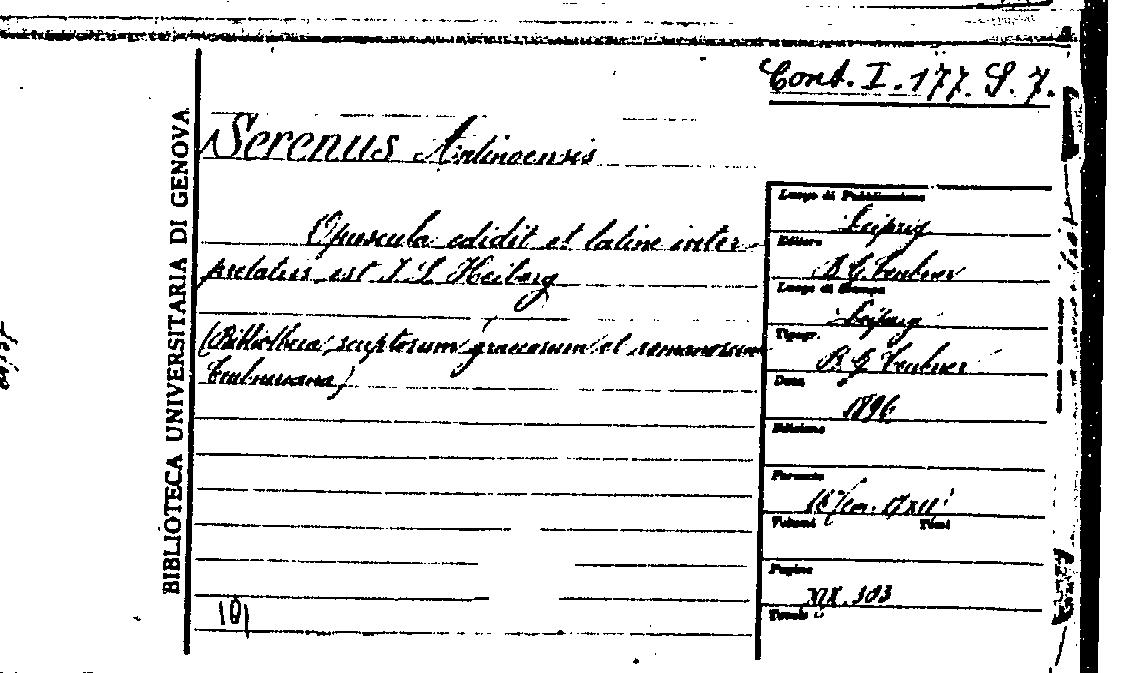 Cont. I. 177. S. 7.
BIBLIOTECA UNIVERSITARIA DI GENOVA
Serenus Antinoensis
Opuscula edidit et latine inter-
pretatus est I. L. Heiberg
(Bibliotheca scriptorum graecorum et romanorum
Teubneriana)
101
Luogo di Pubblicazione
Leipzig
Editore
B. G. Teubner
Luogo di Stampa
Leipzig
Tipogr.
B. G. Teubner
Data
1896
Edizione
Formato
Volumi Tomi
Pagine
XIX. 303
Tavole